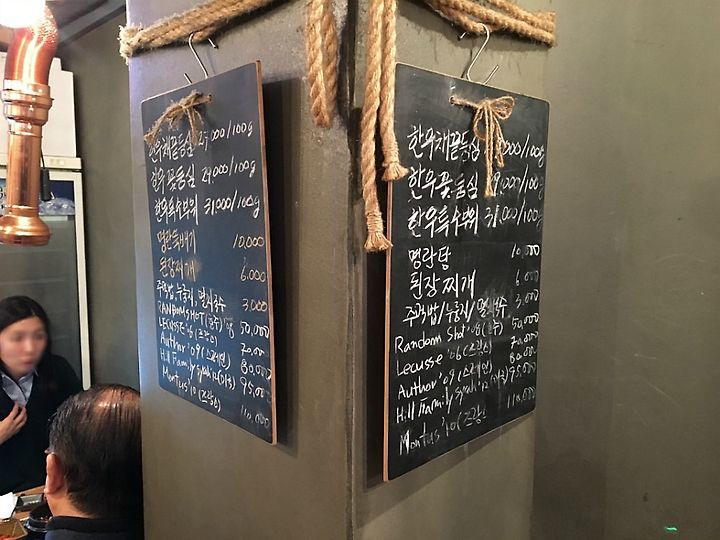 한우채끝등심 27,000/100g
한우꽃등심 29,000/100g
한우특수부위 31,000/100g
명란뚝배기 10,000
된장찌개 6.000
주먹밥/누룽지/멸치국수 3.000
RANDOM SHOT('08 50,000
LECUSSE '06 (프랑스) 70,000
Author '09 (스페인) 80,000
Hill Family syrah '12 (미국) 95,000
Montus '10 (프랑스) 110,000
한우채끝등심 000/100g
한우꽃등심 29,000/100g
한우특수부위 31,000/100g
명란탕 10,000
된장찌개 6.000
주먹밥/누룽지/멸치국수 3.000
Random Shot '08 (호주) 50,000
Lecusse '06 (프랑스) 70,000
Author '09 (스페인) 80,000
Hill Family syrah '12 (미국) 95,000
Montus '10 (프랑스 110,000